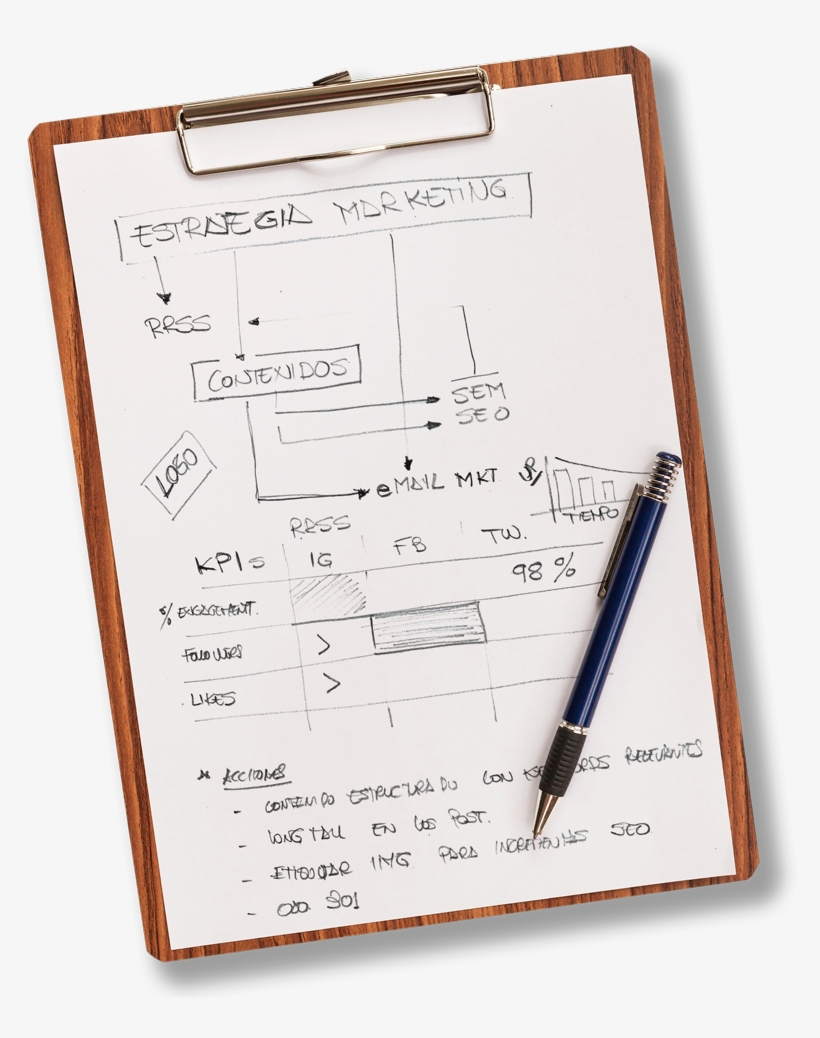 ESTRATEGIA MARKETING
RRSS
CONTENIDOS
SEM
SEO
LOGO
eMAIL MKT
TIEMPO
RRSS
KPIs IG FB TW.
98%
% ENGAGEMENT.
FOLLOWERS >
LIKES >
* ACCIONES
- CONTENIDO ESTRUCTURADO CON RELEVANTES
- LONG TAIL EN LOS POST.
- ETIQUETAR IMG PARA SEO
- 301